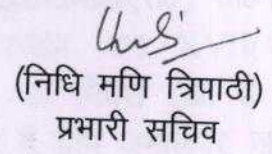 (निधि मणि त्रिपाठी)
प्रभारी सचिव